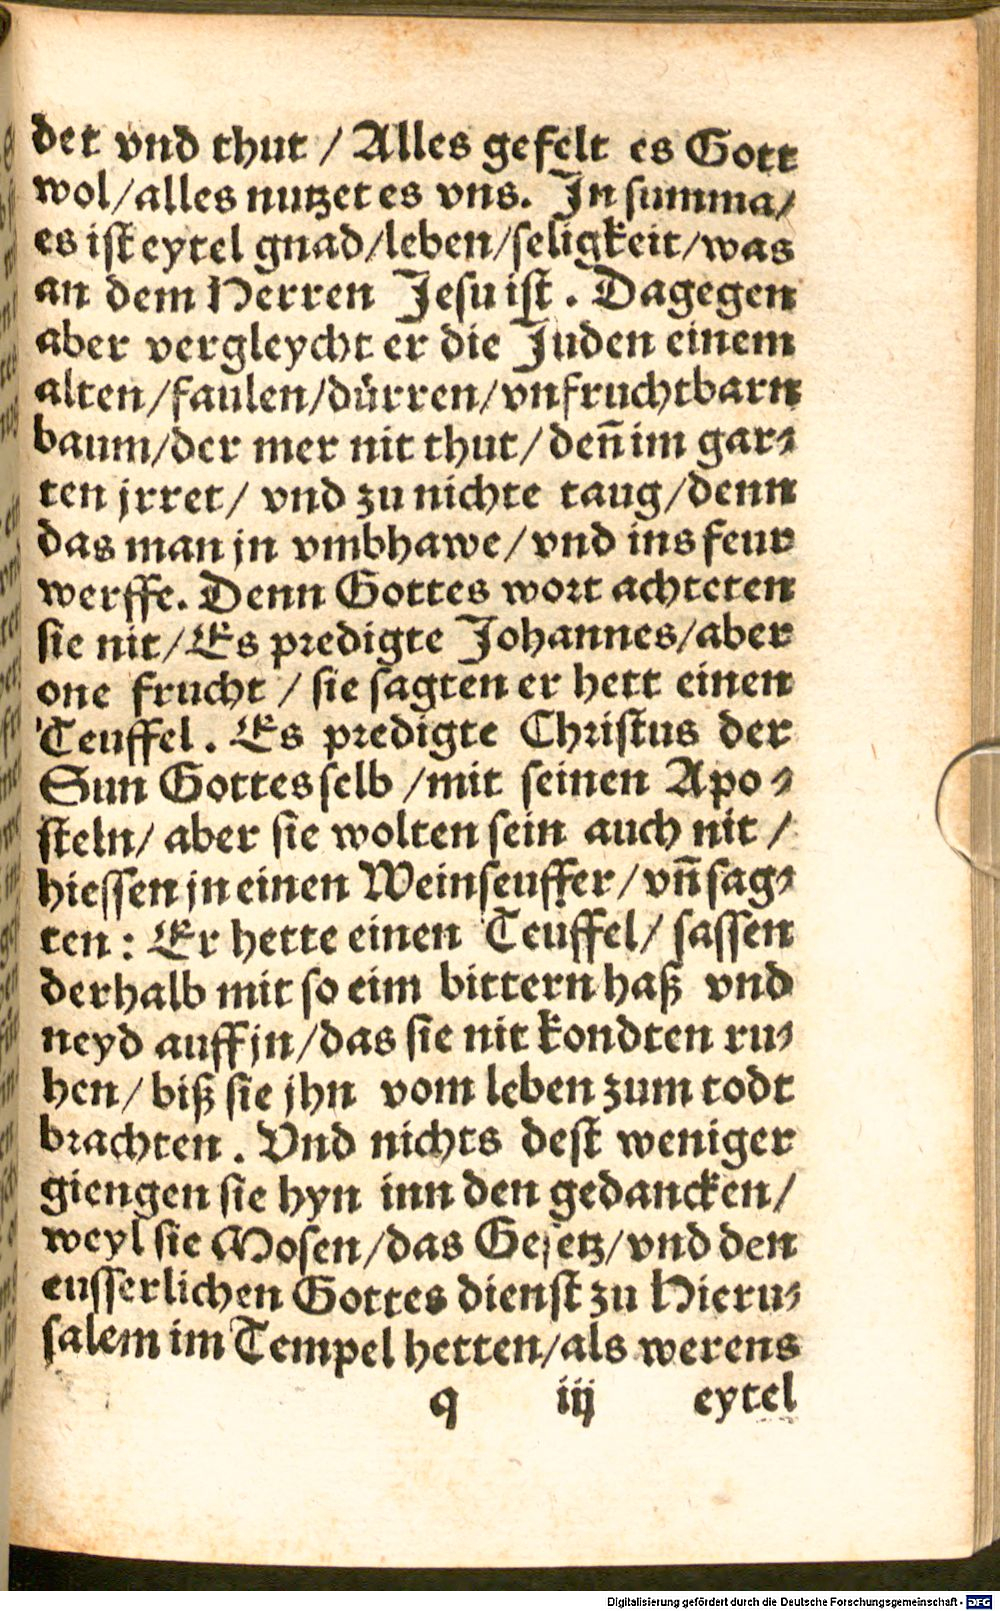 det vnd thut / Alles gefelt es Gott
wol/alles nutzet es vns. In summa/
es ist eytel gnad/leben/seligkeit/was
an dem Herren Jesu ist. Dagegen
aber vergleycht er die Juden einem
alten/faulen/dürren/vnfruchtbarn
baum/der mer nit thut/deñ im gar-
ten jrret/ vnd zu nichte taug/denn
das man jn vmbhawe/vnd ins feur
werffe. Denn Gottes wort achteten
sie nit/Es predigte Johannes/aber
one frucht / sie sagten er hett einen
Teuffel. Es predigte Christus der
Sun Gottes selb /mit seinen Apo-
steln/ aber sie wolten sein auch nit /
hiessen jn einen Weinseuffer/vñ sag-
ten: Er hette einen Teuffel/ sassen
derhalb mit so eim bittern haß vnd
neyd auff jn/das sie nit kondten ru-
hen/ biß sie jhn vom leben zum todt
brachten. Vnd nichts dest weniger
giengen sie hyn inn den gedancken/
weyl sie Mosen/das Gesetz/vnd den
eusserlichen Gottes dienst zu Hieru-
salem im Tempel hetten/als werens
q iij eytel
Digitalisierung gefördert durch die Deutsche Forschungsgemeinschaft - DFG